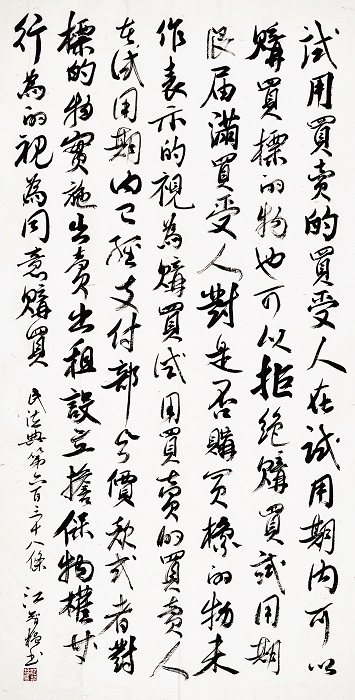 試用買賣的買受人在試用期內可以
購買標的物也可以拒絕購買試用期
限屆滿買受人對是否購買標的物未
作表示的視為購買試用買賣的買賣人
在試用期內已經支付部分價款或者對
標的物實施出賣出租設立擔保物權等
行為的視為同意購買
民法典第六百三十八條 江書